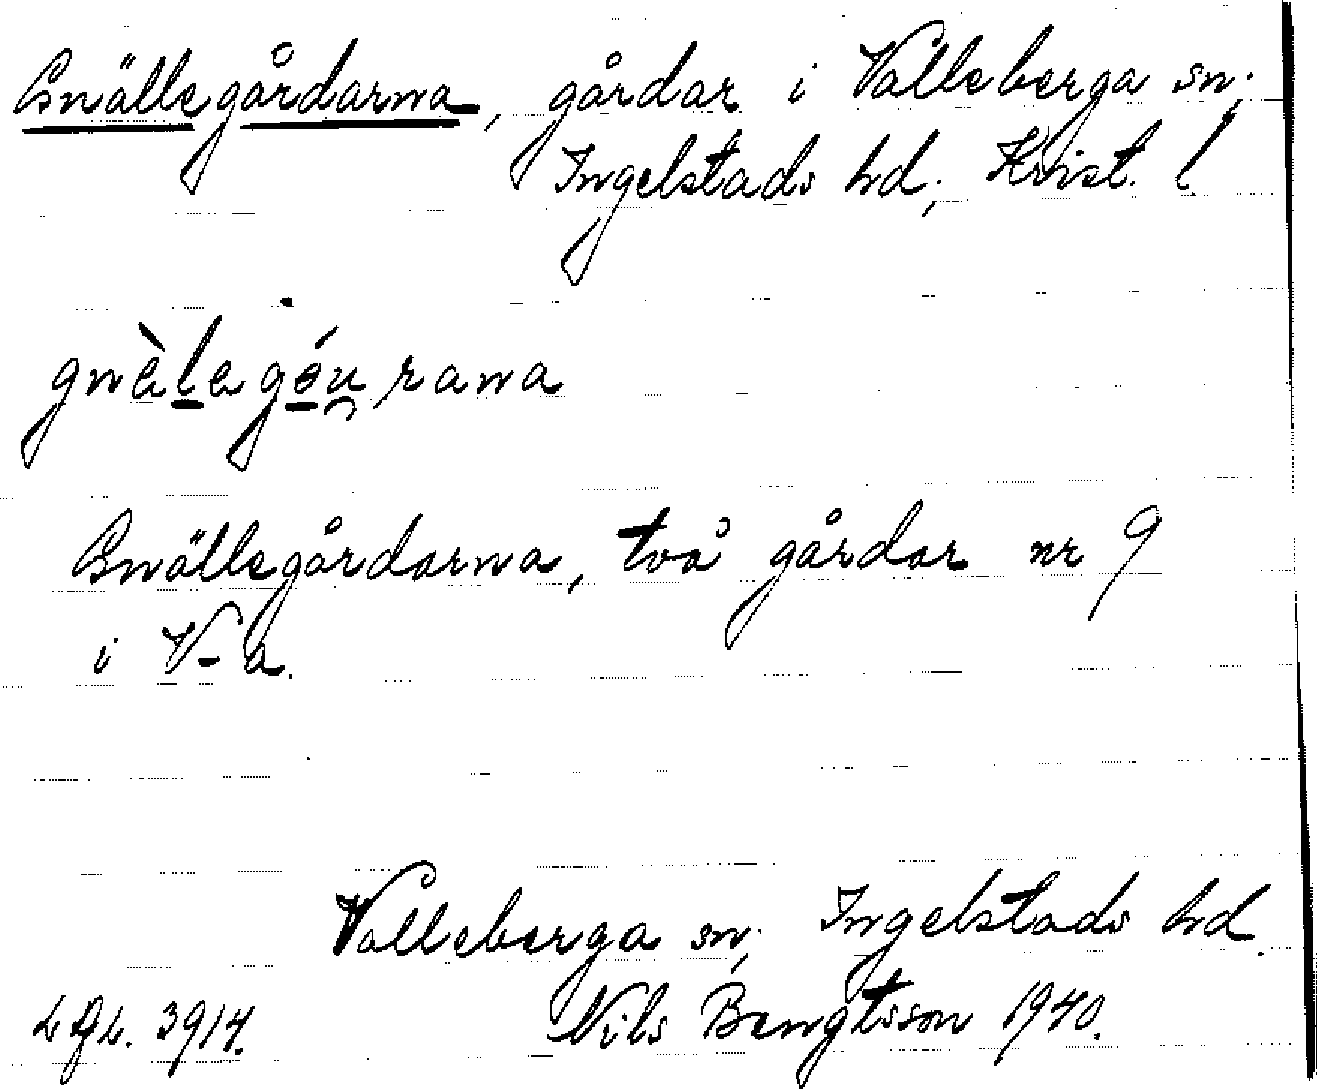 Gnällegårdarna, gårdar i Valleberga sn;
Ingelstads hd; Krist. l
gnèlegóu̯rana
Gnällegårdarna, två gårdar nr 9
i V-a.
Valleberga sn; Ingelstads hd.
Nils Bengtsson 1940.
3914.